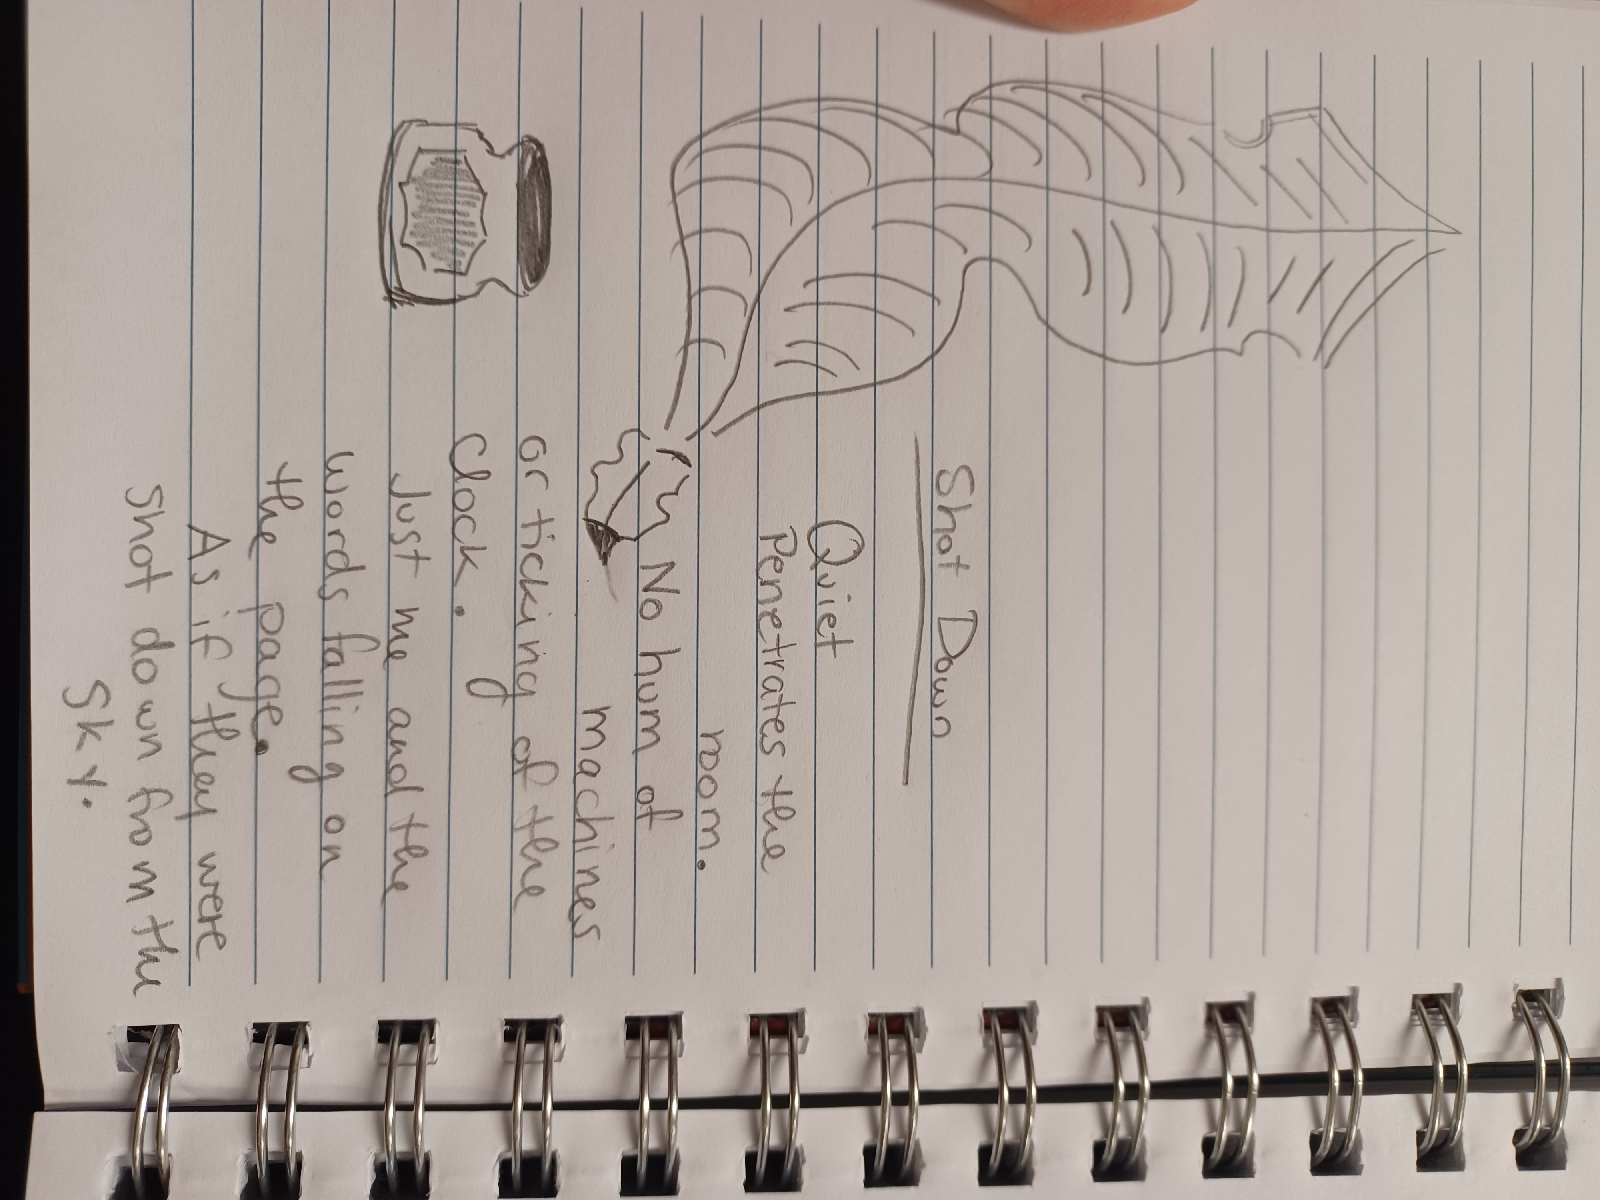 Shot Down
Quiet
Penetrates the
room.
No hum of
machines
or ticking of the
Clock.
Just me and the
words falling on
the page.
As if they were
shot down from the
Sky.